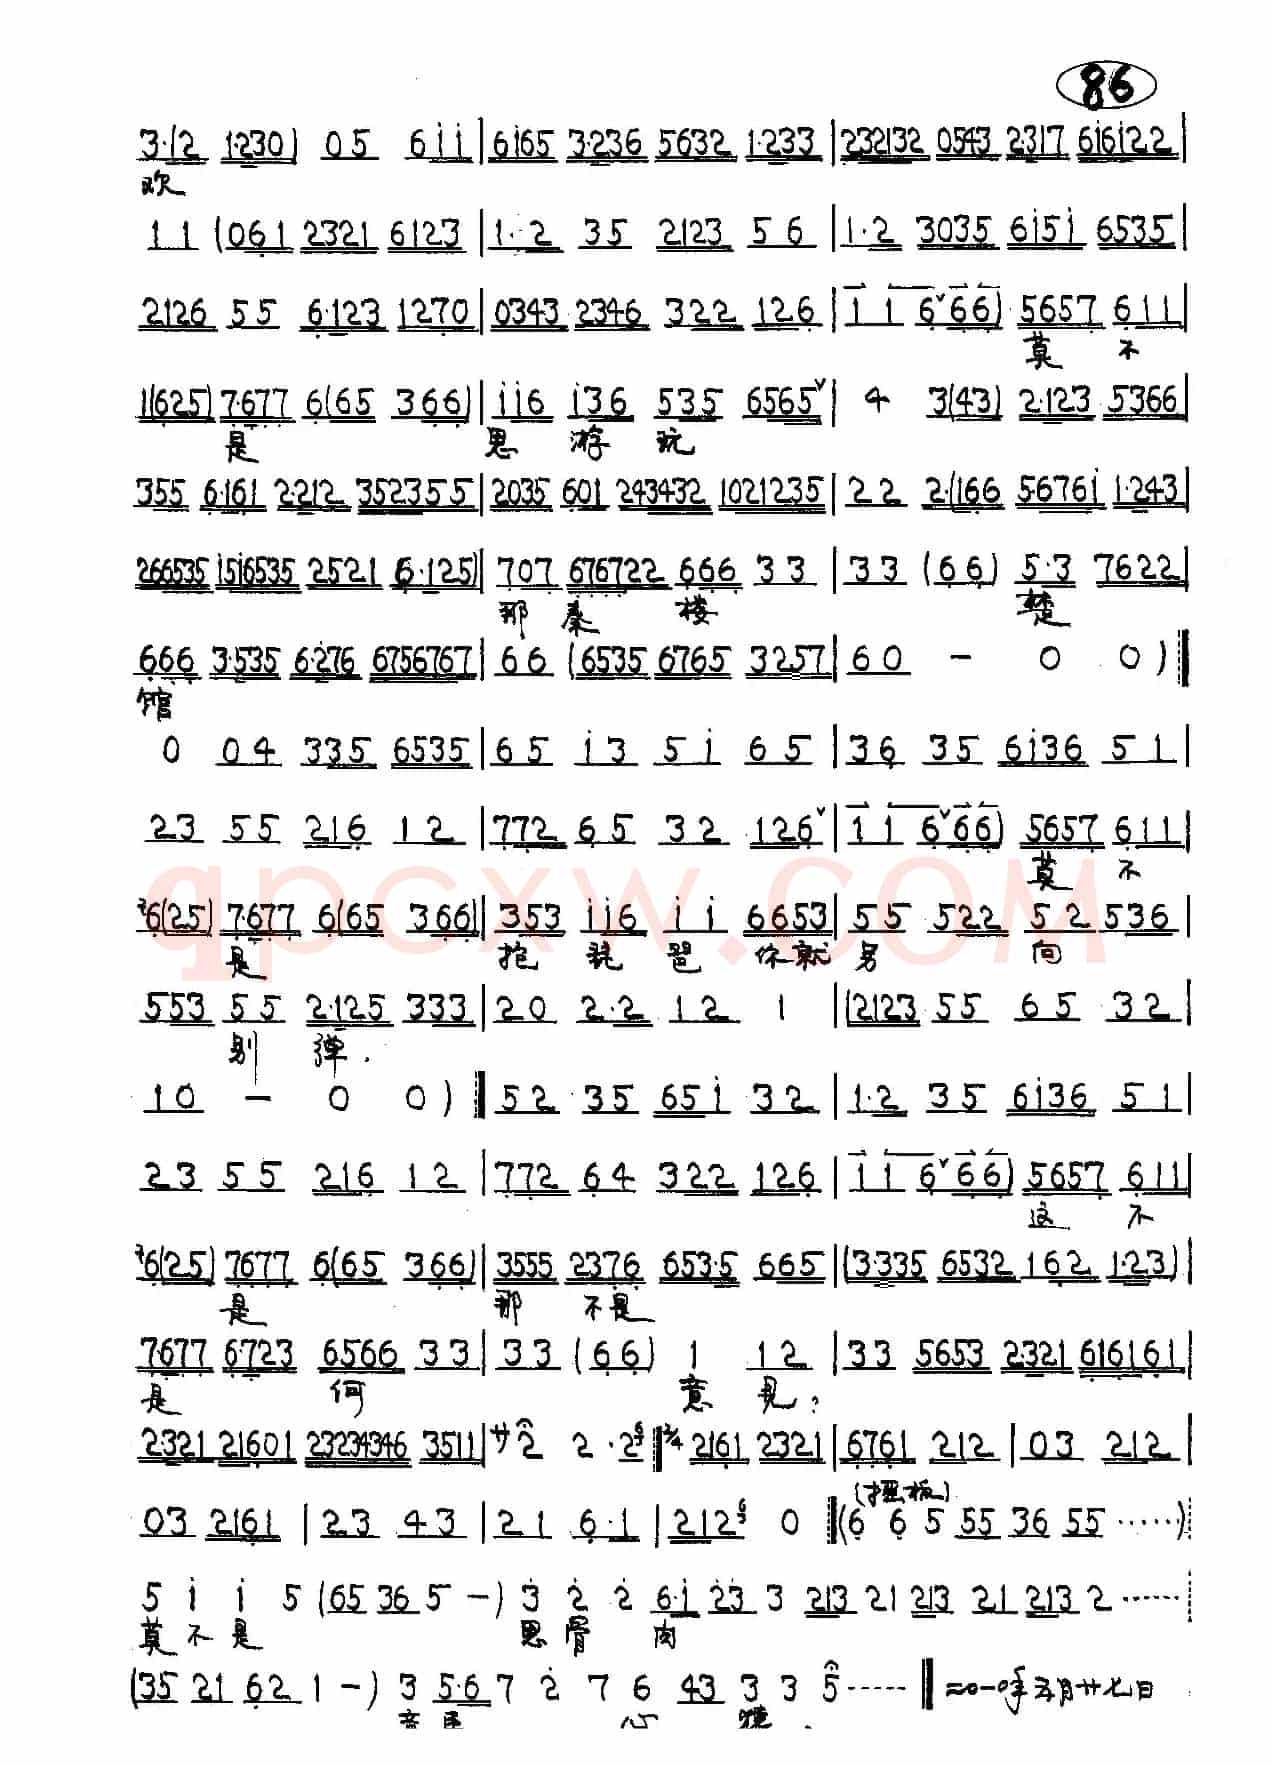 86
3·(2 1·230) 05 6ii | 6i65 3·236 5632 1·233 | 232132 0543 2·317 6i6i22 |
欢
11 (061 2321 6123 | 1·2 35 2123 56 | 1·2 3035 6i5i 6535 |
2126 55 6·123 1270 | 0343 2346 322 126 | 11 6ˇ66) 5657 611 |
莫 不
1(625) 7·677 6(65 366) | ii6 i36 535 6565ˇ | 4 3(43) 2·123 5366 |
是 思 游 玩
355 6·161 2·212 352355 | 2035 601 243432 1021235 | 22 2·(166 5·676i 1·243 |
266535 i5i6535 2521 6·125) | 707 676722 666 33 | 33 (66) 5·3 7622 |
那 秦 楼 楚
666 3·535 6·276 6756767 | 66 (6535 6765 3257 | 60 – 0 0) ‖
馆
0 04 335 6535 | 65 i3 5i 65 | 36 35 6i36 51 |
23 55 216 12 | 772 65 32 126ˇ | 11 6ˇ66) 5657 611 |
莫 不
⁷6(25) 7·677 6(65 366) | 353 ii6 ii 6653 | 55 522 52 536 |
是 抱 琵 琶 你就 另 向
553 55 2·125 333 | 20 2·2 12 1 | (2123 55 65 32 |
别 弹.
10 – 0 0) ‖ 52 35 65i 32 | 1·2 35 6i36 51 |
23 55 216 12 | 772 64 322 126 | 11 6ˇ66) 5657 611 |
这 不
⁷6(25) 7677 6(65 366) | 3555 2376 653·5 665 | (3·335 6532 162 1·23) |
是 那 不是
7·677 6·723 6566 33 | 33 (66) 1 12 | 33 5653 2321 616161 |
是 何 意 见?
2321 21601 23234346 3511 | サ2 2·2 ‖ 2/4 2161 2321 | 6761 212 | 03 212 |
03 2161 | 23 43 | 21 6·1 | 212 0 ‖ (6 6 5 55 36 55 ······)
5 i i 5 (65 36 5 –) 3 2 2 6·i 23 3 213 21 213 21 213 2 ······
莫 不 是 思 骨 肉
(35 21 62 1 –) 3 5·6 7 2 7 6 43 3 3 5 ····· ‖ 二〇一〇年五月廿七日
意 心